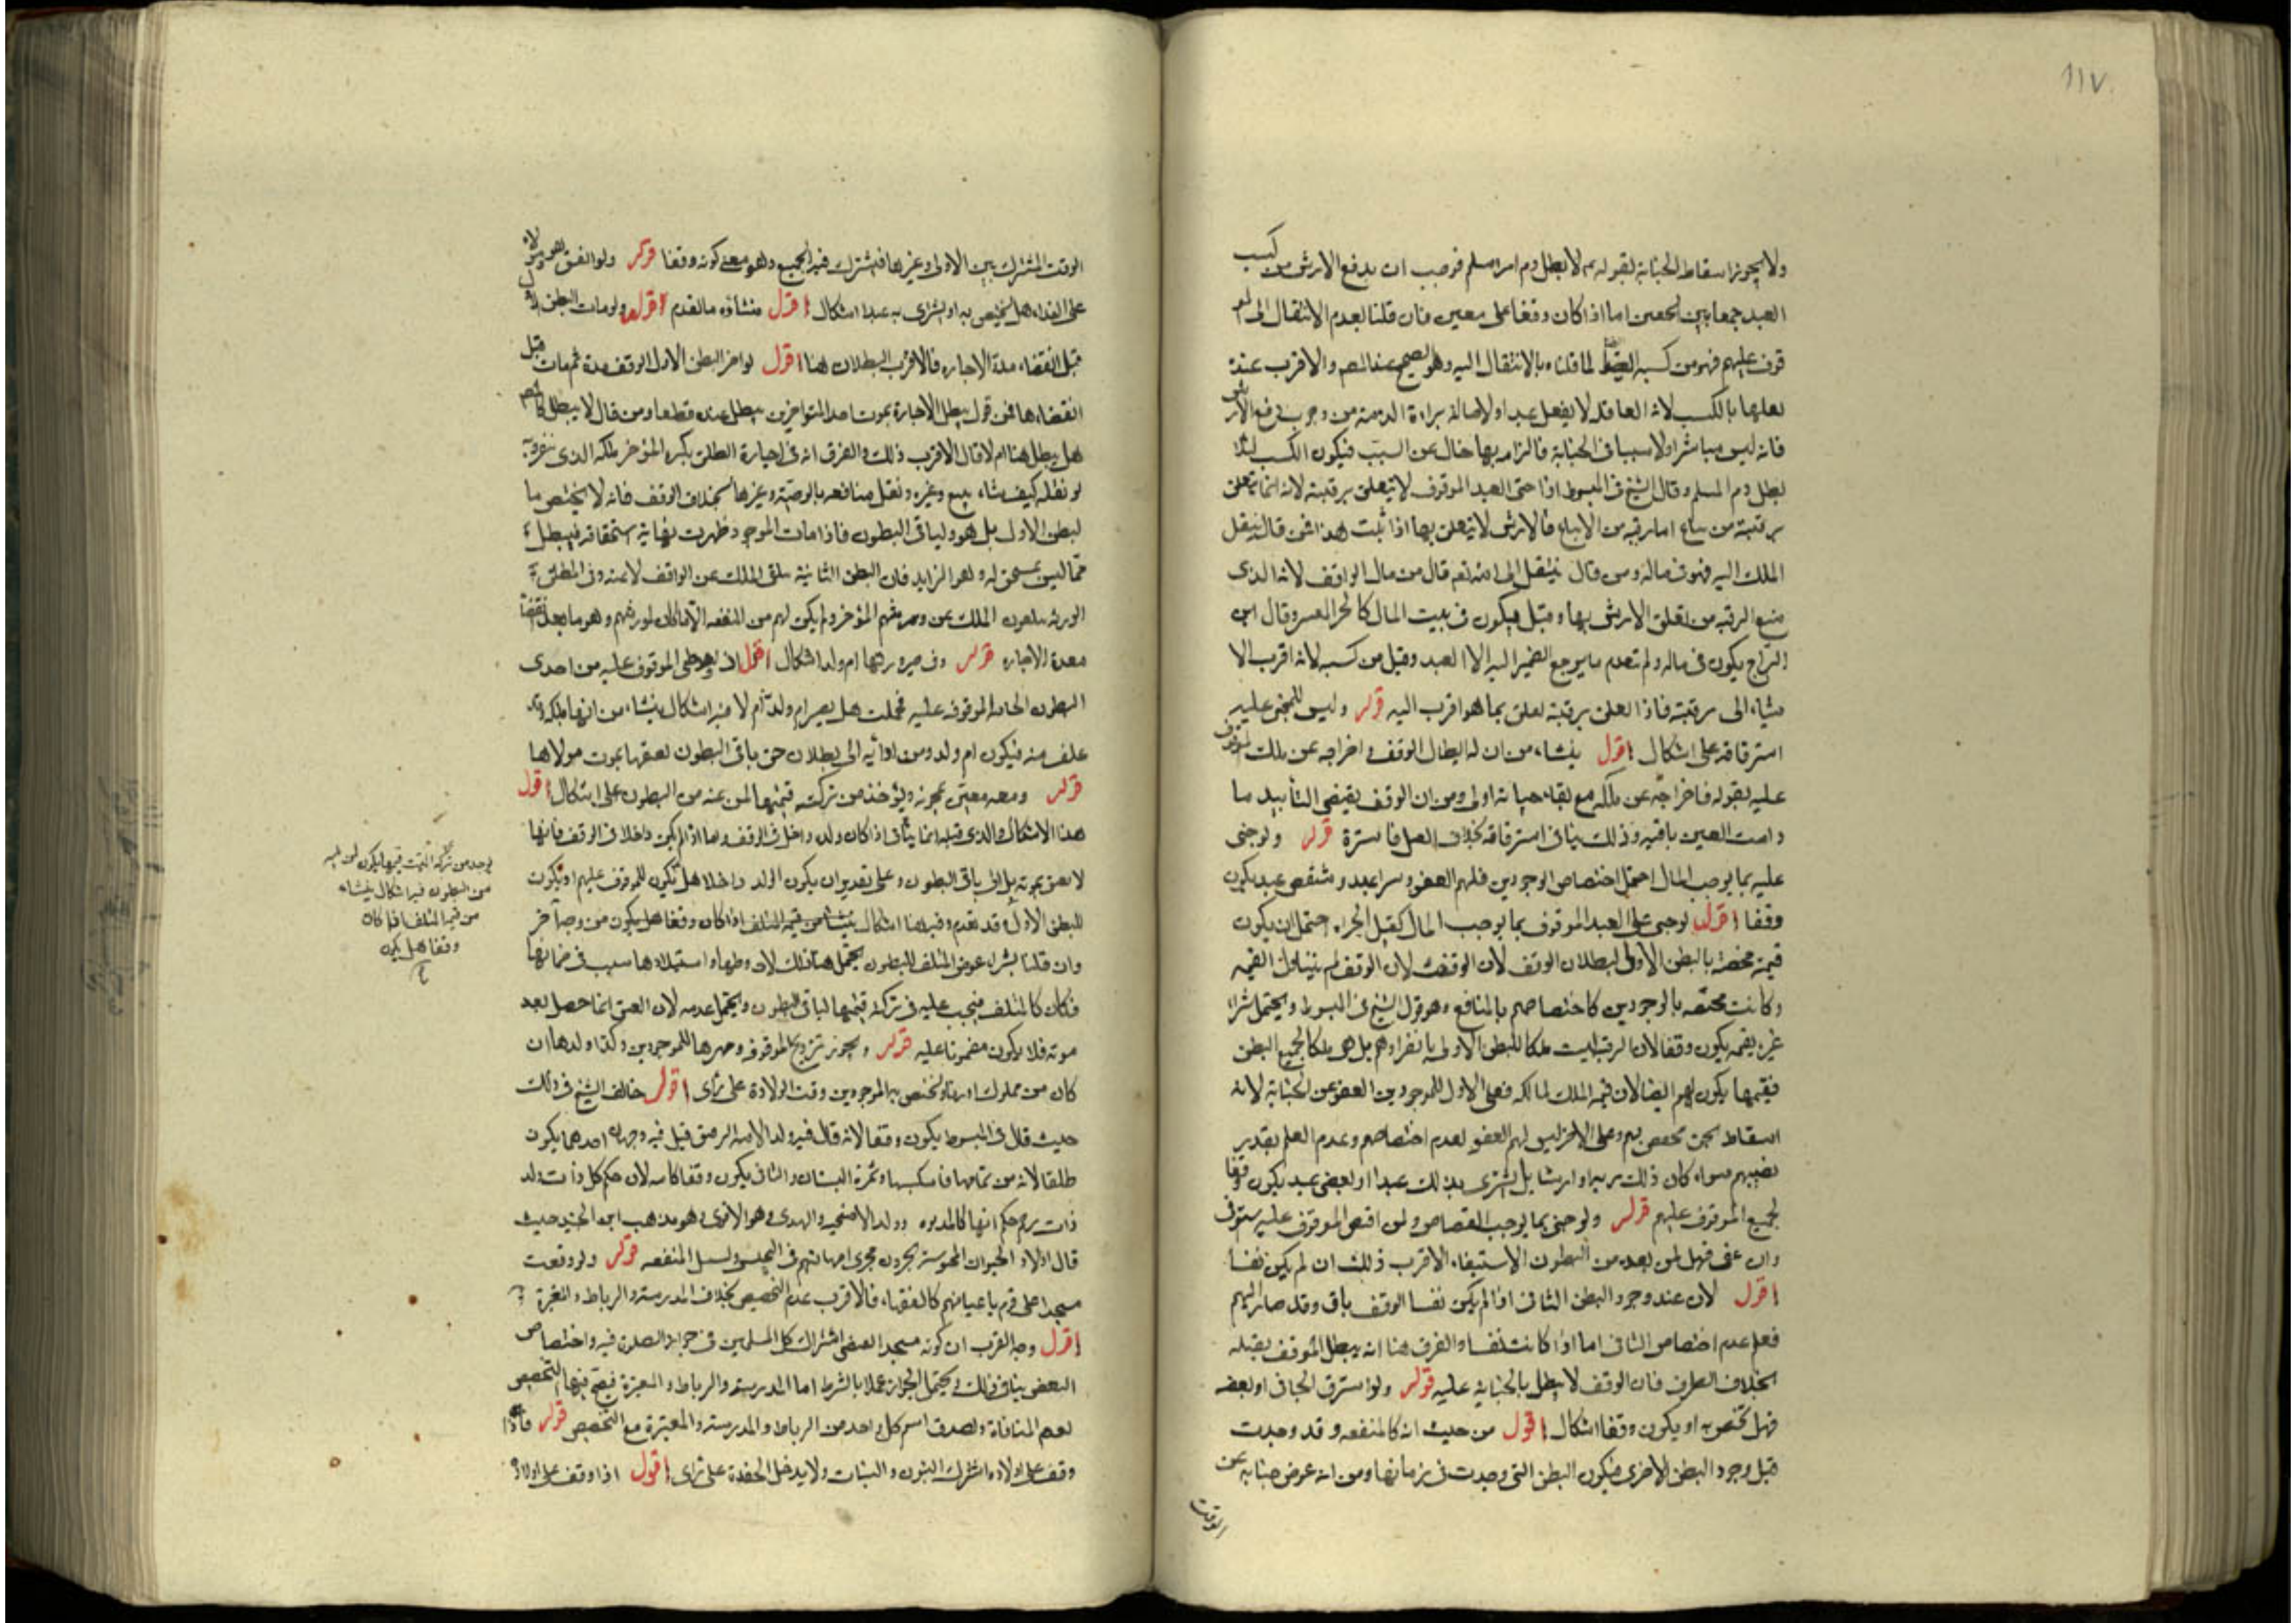 ١١٧
ولا يجوز اسقاط الجناية لقوله لا يطل دم امرء مسلم فوجب ان يدفع الارش من كسب
العبد جمعا بين الحقين اما اذا كان وقفا على معين فان قلنا بعدم الانتقال الى المو
قوف عليهم فهو من كسبه ايضا لما قلناه بالانتقال اليه وهو الصحيح عند المصم والاقرب عنده
تعلقها بالكسب لان العاقلة لا يعقل عبدا ولاصالة براءة الذمة من وجوب دفع الارش
فانه ليس مباشرا ولا سببا في الجناية فالزامه بها خال عن السبب فيكون الكسب لئلا
يطل دم المسلم وقال الشيخ في المبسوط اذا جنى العبد الموقوف لا يتعلق برقبته لانه انما يتعلق
برقبته من يباع اما رقبة من لا يباع فالارش لا يتعلق بها اذا ثبت هذا فمن قال ينقل
الملك اليه فهو في ماله ومن قال ينتقل الى الله تعم قال من مال الواقف لانه الذى
منع الرقبة من تعلق الارش بها وقيل يكون في بيت المال كالحر المعسر وقال ابن
البراج يكون في ماله ولم تقدم ما يرجع الضمير اليه الا العبد وقيل من كسبه لانه اقرب الا
شياء الى رقبته فاذا تعلق برقبته تعلق بما هو اقرب اليه قوله وليس للمجنى عليه
استرقاقه على اشكال اقول ينشاء من ان له ابطال الوقف واخراجه عن ملك الموقوف
عليه بقوله فاخراجه عن ملكه مع بقاء حياته اولى ومن ان الوقف يقتضى التأبيد ما
دامت العين باقيه وذلك ينافى استرقاقه بخلاف القتل قوله ولو جنى
عليه بما يوجب المال احتمل اختصاص الموجودين فلهم العفو وشراء عبد او شقص عبد يكون
وقفا اقول لو جنى على العبد الموقوف بما يوجب المال كقتل الحر احتمل ان يكون
قيمته مختصة بالبطن الاولى لبطلان الوقف لان الوقف لان الوقف لم يتناول القيمه
وكانت مختصه بالموجودين كاختصاصهم بالمنافع وهو قول الشيخ في المبسوط ويحتمل شراء
غيره بقيمته يكون وقفا لان الرقبة ليست ملكا للبطن الاولى بانفرادهم بل هى ملك لجميع البطن
فقيمتها يكون لهم ايضا لان قيمه الملك لمالكه فعلى الاول للموجودين العفو عن الجناية لانه
اسقاط لحق مختص بهم وعلى الاخر ليس لهم العفو لعدم اختصاصهم وعدم العلم بقدر
نصيبهم سواء كان ذلك دية او ارشا بل يشترى بذلك عبدا او بعض عبد يكون وقفا
لجميع الموقوف عليهم قوله ولو جنى بما يوجب القصاص ولمن اقتص الموقوف عليه يستوفى
وان عفى فهل لمن بعده من البطون الاستيفاء الاقرب ذلك ان لم يكن نفسا
اقول لان عند وجود البطن الثانى اذا لم يكن نفسا الوقف باق وقد صار اليهم
فعلم عدم اختصاص الثانى اما اذا كانت نفسا والفرق هنا انه يبطل الوقف بقتله
بخلاف الطرف فان الوقف لا يبطل بالجناية عليه قوله ولو استرق الجانى او بعضه
فهل يختص به او يكون وقفا اشكال اقول من حيث انه كالمنفعه وقد وجدت
قبل وجود البطن الاخرى فيكون البطن التى وجدت في زمانها ومن انه عوض جناية عن
الوقف
الوقف المشترك بين الاولى وغيرها فيشترك فيه الجميع وهو معنى كونه وقفا قوله ولو اتفق هو ومولاه
على الفداء هل يختص به او يشترى به عبدا اشكال اقول منشأه ما تقدم قوله ولو مات البطن الاول
قبل انقضاء مدة الاجارة فالاقرب البطلان هنا اقول لو اجر البطن الاول الوقف مدة ثم مات قبل
انقضاءها فمن قول يبطل الاجارة بموت احد المتواجرين يبطل عنده قطعا ومن قال لا يبطل كالمصم
هل يبطل هنا ام لا قال الاقرب ذلك والفرق انه في اجارة الطلق يكره المؤجر ملكه الذى
لو نقله كيف شاء ببيع وغيره ونقل منافعه بالوصية وغيرها بخلاف الوقف فانه لا يختص با
لبطن الاول بل هو ولباقى البطون فاذا مات الموجود ظهرت نهاية استحقاقه فيبطل
مما ليس يستحق له وهو الزايد فان البطن الثانية يتلقى الملك عن الواقف لا عنه وفى المطلق
الورثة يتلقون الملك عن مورثهم المؤجر ولم يكن لهم من المنفعه الا ما كان لمورثهم وهو ما بعد انقضاء
مدة الاجاره قوله وفى صيرورتها ام ولد اشكال اقول اذا وطى الموقوف عليه من احدى
البطون الجارية الموقوفه عليه فحملت هل يصير ام ولد ام لا فيه اشكال ينشاء من انها ملكه وقد
علقت منه فيكون ام ولد ومن ادائه الى بطلان حق باقى البطون لعتقها بموت مولاها
قوله ومعه معتق بموته ويؤخذ من تركته قيمتها لمن عنه من البطون على اشكال اقول
هذا الاشكال والذى قبله انما يتأتى اذا كان ولده داخل في الوقف وما اذا لم يكن داخلا في الوقف فانها
لا يعتق بموته بل الى باقى البطون وعلى تقدير ان يكون الولد داخلا هل يكون للموقوف عليهم او يكون
للبطن الاول قد تقدم وفيه هنا اشكال ينشاء من قيمة المتلف اذا كان وقفا هل يكون من وجه آخر
وان قلنا بشراء عوض المتلف للبطون يحتمل هنا ذلك لان وطيها واستيلادها سبب في ضمانها
فكان كالمتلف فيجب عليه في تركته قيمتها لباقى البطون ويحتمل عدمه لان العتق انما حصل بعد
موته فلا يكون مضمونا عليه قوله ويجوز تزويج الموقوفه ومهرها للموجودين وكذا ولدها ان
كان من مملوك او زنا ويختص به الموجودين وقت الولادة على رأى اقول خالف الشيخ في ذلك
حيث قال في المبسوط يكون وقفا لانه قال فيه ولد الامة المرهون قيل فيه وجهان احدهما يكون
طلقا لانه من نمائها فاشبه كسبها وثمرة البستان والثانى يكون وقفا كامه لان حكم كل ذات ولد
ذات رحم حكم امها كالمدبره وولد الاضحيه والهدى وهو الاقوى وهو مذهب ابن الجنيد حيث
قال اولاد الحيوان المحبوسة يجرون مجرى امهاتهم في التحبيس وتسبل المنفعه قوله ولو وقفت
مسجدا على قوم باعيانهم كالفقهاء فالاقرب عدم التخصيص بخلاف المدرسة والرباط والمقبرة
اقول وجه القرب ان كونه مسجدا يقتضى اشتراك كل المسلمين في جواز الصلوة فيه واختصاص
البعض ينافى ذلك ويحتمل الجواز عملا بالشرط اما المدرسة والرباط والمقبرة فيصح فيها التخصيص
لعدم المنافاة ولصدق اسم كل واحد من الرباط والمدرسة والمقبرة مع التخصيص قوله فاذا
وقف على اولاده اشترك البنون والبنات ولا يدخل الحفدة على رأى اقول اذا وقف على اولاده
يوخذ من تركة الميت قيمتها يكون لمن يليه
من البطون فيه اشكال ينشاء
من قيمه المتلف اذا كان
وقفا هل يكون